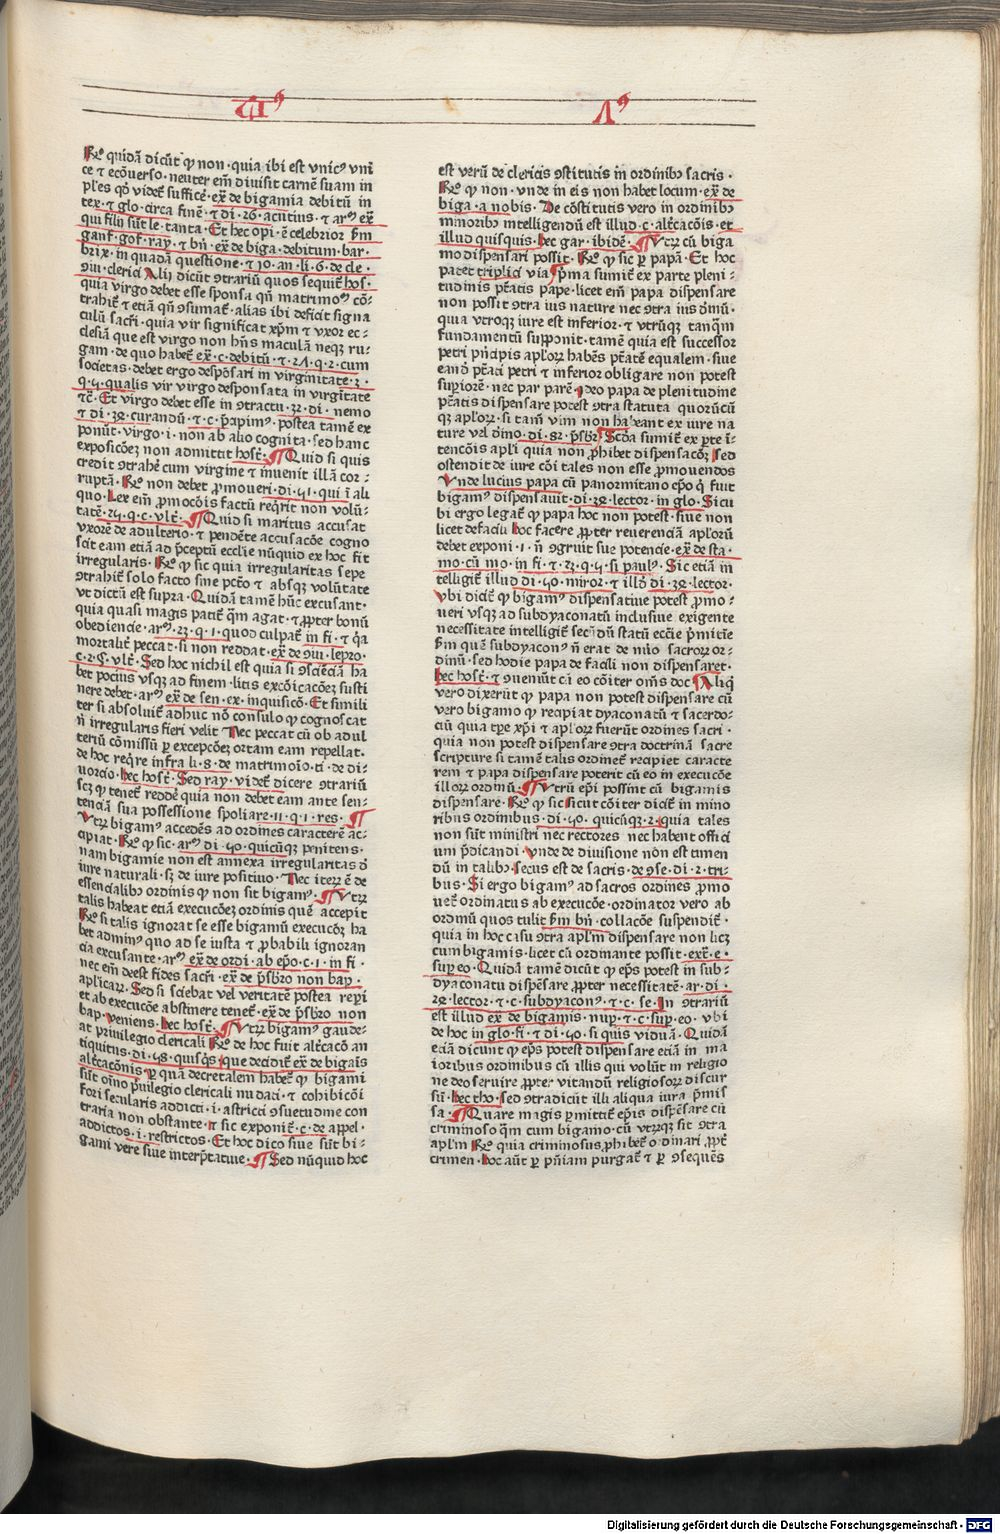 Rͦ quidā dicūt ꝙ non · quia ibi est vnicꝰ vni
ce ⁊ ecōuerso · neuter em̄ diuisit carnē suam in
ples qd̕ videt̕ sufficē · ex̄ de bigamia debitū in
tex · ⁊ glo · circa finē · ⁊ di · 26 · acutius · ⁊ arᵒ ex̄
qui filij sūt le · tanta · Et hec opi · ē celebrior ẜm
ganf̄ · gof̄ · ray · ⁊ bn̄ · ex̄ de biga · debitum · bar ·
brix · in quadā questione · ⁊ Jo · an · li · 6 · de cle ·
ꝯiu · clerici Alij dicūt ꝯtrariū quos sequit̕ hos ·
quia virgo debet esse sponsa qn̄ matrimoᵐ cō-
trahit̕ ⁊ etiā qn̄ ꝯsumat̕ · alias ibi deficit signa
culū sacri · quia vir significat xp̄m ⁊ vxor ec-
clesiā que est virgo non hn̄s maculā neqꝫ ru-
gam · de quo habet̕ ex̄ · c · debitū · ⁊ 27 · q · 2 · cum
societas · debet ergo despōsari in virginitate · 3 ·
q · 5 · qualis vir virgo desponsata in virgītate
rē · Et virgo debet esse in ꝯtractu · 32 · di · nemo
⁊ di · 38 · curandū · ⁊ c · p̄papimꝰ · postea tamē ex
ponūt · virgo · i · non ab alio cognita · sed hanc
exposicōeꝫ non admittit host̄ · ¶ Quid si quis
credit ꝯtrahe̕ cum virgine ⁊ inuenit illā cor-
ruptā · Rͦ non debet ꝓmoueri · di · 51 · qui ī ali
quo · Lex em̄ ꝓmocōis factū req̄rit non volū-
tatē · 25 · q · c · vlt̄ · ¶ Quid si maritus accusat
vxorē de adulterio · ⁊ pendēte accusacōe cogno
scit eam etiā ad p̄ceptū ecclie nūquid ex hoc fit
irregularis · Rͦ ꝙ sic quia irregularitas sepe
ꝯtrahit̕ solo facto sine pctō ⁊ absqꝫ volūtate
vt dictū est supra · Quidā tamē hūc excusant ·
quia quasi magis patit̕ qͣm agat · ⁊ ꝓpter bonū
obediencie · arᵒ · 23 · q · 1 · quod culpat̕ in fi · ⁊ qͣa
mortalit̕ peccat · si non reddat · ex̄ de ꝯiu · lepro ·
c · 2 · ⁊ · vlt̄ · Sed hoc nichil est quia si ꝯsciēciā ha
bet pocius vsqꝫ ad finem · litis excōicacōeꝫ susti
nere debet · arᵒ ex̄ de sen · ex · inquisicō · Et simili
ter si absoluit̕ adhuc nō consulo ꝙ cognoscat
n̄ irregularis fieri velit Nec peccat cū ob adul
teriū cōmissū ꝑ excepcōeꝫ ortam eam repellat ·
de hoc req̄re infra li · 8 · de matrimoīo · ti · de di-
uorcio · hec host̄ · Sed ray · videt̕ dicere ꝯtrariū
scꝫ ꝙ tenet̕ redde̕ quia non debet eam ante sen-
tenciā sua possessione spoliare · 11 · q · 1 · res · ¶
Vtꝝ bigamꝰ accedēs ad ordines caracterē ac-
cipiat · Rͦ ꝙ sic · arᵒ di · 50 · quicūqꝫ penitens ·
nam bigamie non est annexa irregularitas d̕
iure naturali · sꝫ de iure positiuo · Nec iteꝝ ē de
essencialibꝫ ordinis ꝙ non sit bigamꝰ · ¶ Vtꝝ
talis habeat etiā execucōeꝫ ordinis quē accepit
Rͦ si talis ignorat se esse bigamū execucōꝫ ha
bet adminꝰ quo ad se iusta ⁊ ꝓbabili ignoran
cia excusante · arᵒ ex̄ de ordi · ab ep̄o · c · 1 · in fi ·
nec em̄ deest fides sacri · ex̄ de p̄sbro non bap ·
aplicaꝝ · Sed si sciebat vel veritatē postea rep̄i
et ab execucōe abstinere tenet̕ · ex̄ de p̄sbro non
bap · veniens · hec host̄ · ¶ Vtꝝ bigamꝰ gaude-
at priuilegio clericali Rͦ de hoc fuit alt̕cacō an
tiquitus · di · 58 · quisq̄s · que decidit̕ ex̄ de bigaīs
alt̕cacōnis · ꝑ quā decretalem habet̕ ꝙ bigami
sūt oīno p̄uilegio clericali nudati · ⁊ cohibicōi
fori secularis addicti · i · astricti ꝯsuetudine con
traria non obstante · ⁊ sic exponit̕ · c · de appel ·
addictos · i · restrictos · Et hoc dico siue sūt bi-
gami vere siue interp̄tatiue · ¶ Sed nūquid hoc
est verū de clericis ꝯstitutis in ordinibꝫ sacris ·
Rͦ ꝙ non · vnde in eis non habet locum · ex̄ de
biga · a nobis · De cōstitutis vero in ordinibꝫ
minoribꝫ intelligendū est illud · c · alt̕cacōis · et
illud quisquis · hec gar · ibidē · ¶ Vtꝝ cū biga
mo dispensari possit · Rͦ ꝙ sic ꝑ papā · Et hoc
patet triplici via ¶ prima sumit̕ ex parte pleni-
tudinis p̄tatis pape · licet em̄ papa dispensare
non possit ꝯtra ius nature nec ꝯtra ius diuinū ·
quia vtroqꝫ iure est inferior · ⁊ vtrūqꝫ tanqͣm
fundamentū supponit · tamē quia est successor
petri pͥncipis aploꝝ habēs p̄tatē equalem · siue
eandē p̄taci petri ⁊ inferior obligare non potest
supiorē · nec par parē · ideo papa de plenitudine
p̄tatis dispensare potest ꝯtra statuta quoꝝcū
qꝫ aploꝝ · si tam̄ vim non habeant ex iure na
ture vel diuino · di · 82 · p̄sbr̄ ¶ Scd̕a sumit̕ ex ꝑte ī-
tencōis apli quia non ꝓhibet dispensacōꝫ sed
ostendit de iure cōi tales non esse ꝓmouendos
Vnde lucius papa cū panormitano ep̄o q̄ fuit
bigamꝰ dispensauit · di · 38 · lector · in glo · Sicu
bi ergo legat̕ ꝙ papa hoc non potest · siue non
licet de facili hoc facere ꝓpter reuerenciā aploꝝ
debet exponi · i · n̄ ꝯgruit sue potencie · ex̄ de sta ·
mo · cū mo · in fi · ⁊ · 22 · q · 5 · si paulꝰ · Sic etiā in
telligit̕ illud di · 50 · miror · ⁊ illd̕ di · 38 · lector ·
vbi dicit̕ ꝙ bigamꝰ dispensatiue potest ꝓmo-
ueri vsqꝫ ad subdyaconatū inclusiue exigente
necessitate intelligit̕ scd̕m statū eccl̕ie pͥmitiē
ẜm quē subdyaconꝰ n̄ erat de nūo sacroꝝ or-
dinū · sed hodie papa de facili non dispensaret ·
hec host̄ · ⁊ ꝯuenūt c · i · eo cōiter om̄s doc ¶ Aliq̄
vero dixerūt ꝙ papa non potest dispensare cū
vero bigamo ꝙ recipiat dyaconatū ⁊ sacerdo-
ciū quia tꝑe xp̄i ⁊ aploꝝ fuerūt ordines sacri ·
quia non potest dispensare ꝯtra doctrinā sacre
scripture si tamē talis ordinet̕ recipiet caracte
rem ⁊ papa dispensare poterit cū eo in execucōe
illoꝝ ordinū · ¶ Vtrū ep̄i possint cū bigamis
dispensare · Rͦ ꝙ sic sicut cōiter dicit̕ in mino
ribus ordinibus · di · 50 · quicūqꝫ · 2 · quia tales
non sūt ministri nec rectores nec habent offici
um p̄dicandi · vnde de diuisione non est timen
dū in talibꝫ · secus est de sacris · de ꝯse · di · 2 · tri-
bus · Si ergo bigamꝰ ad sacros ordines ꝓmo
uet̕ ordinatus ab execucōe · ordinator vero ab
ordinū quos tulit ẜm bn̄ · collacōe suspendit̕ ·
quia in hoc casu ꝯtra aplm dispensare non licꝫ
cum bigamis · licet cū ordinante possit · ex̄ · e ·
sup eo · Quidā tamē dicūt ꝙ ep̄s potest in sub-
dyaconatu dispēsare ꝓpter necessitatē · ar · di ·
38 · lector · ⁊ c · subdyaconꝰ · ⁊ c · se · In ꝯtrariū
est illud ex̄ de bigamis · nup · ⁊ c · sup · eo · vbi
de hoc in glo · fi · ⁊ di · 50 · si quis viduā · Quidā
eciā dicunt ꝙ ep̄s potest dispensare etiā in ma
ioribus ordinibus cū illis qui volūt in religio
ne deo seruire ꝓpter vitandū religiosoꝝ discur
sū · hec tho · sed ꝯtradicūt illi aliqua iura p̄mis
sa · ¶ Quare magis ꝑmittit̕ ep̄is dispēsare cū
criminoso qͣm cum bigamo · cū vtrūqꝫ sit ꝯtra
aplm Rͦ quia criminosus ꝓhibet̕ ordinari ꝓpt̕
crimen · hoc aūt ꝑ pn̄iam purgat̕ ⁊ ꝑ ꝯsequēs
Digitalisierung gefördert durch die Deutsche Forschungsgemeinschaft - DFG